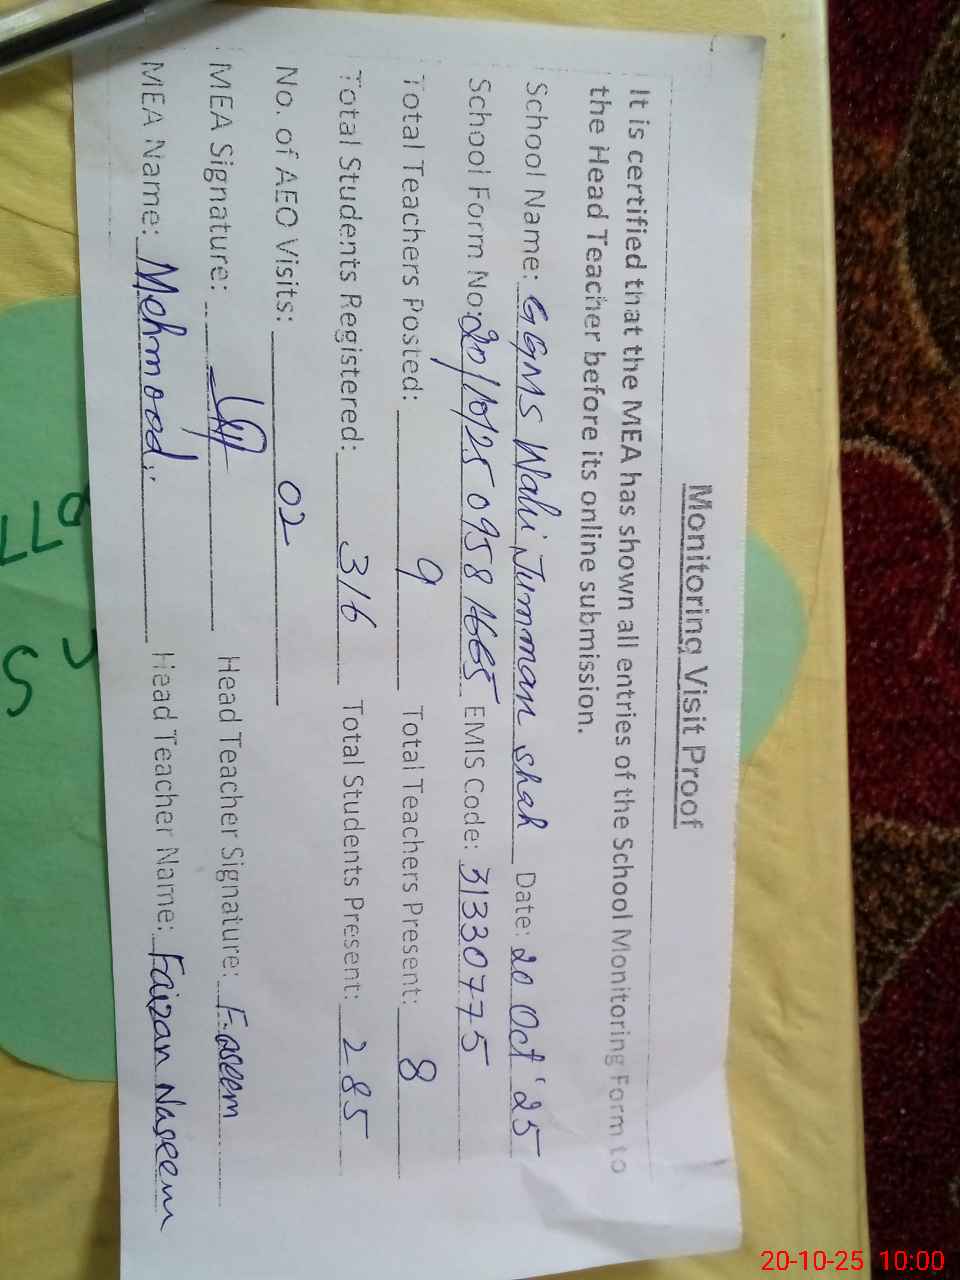 Monitoring Visit Proof
It is certified that the MEA has shown all entries of the School Monitoring Form to
the Head Teacher before its online submission.
School Name: GGMS Wahi Jumman Shah Date: 20 Oct '25
School Form No: 20/10/25 0958 EMIS Code: 31330775
Total Teachers Posted: 9 Total Teachers Present: 8
Total Students Registered: 316 Total Students Present: 285
No. of AEO Visits: 02
MEA Signature: Head Teacher Signature: F.aseem
MEA Name: Mehmood. Head Teacher Name: Faizan Naseem
20-10-25 10:00